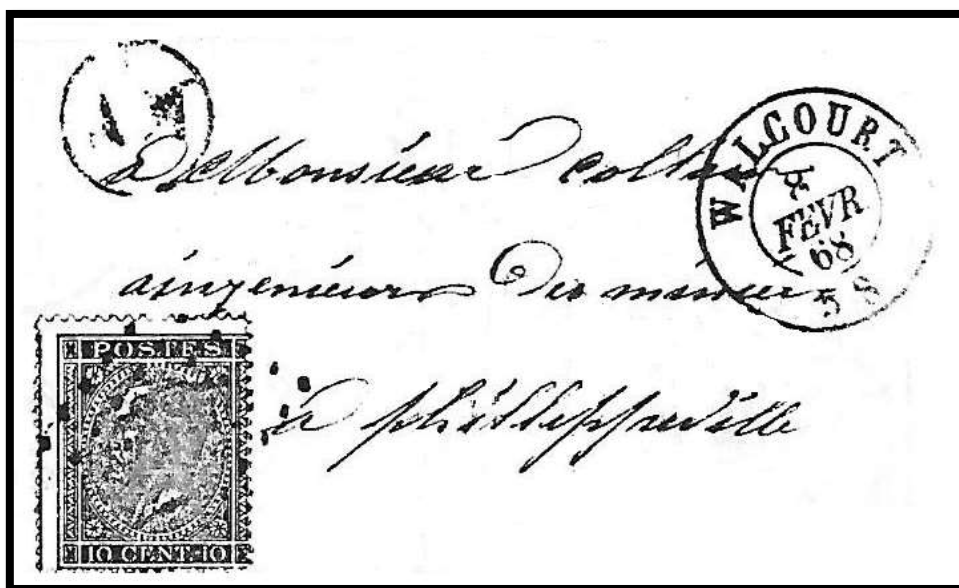 WALCOURT
8
FEVR
68
5 S
a Monsieur
aingenieur Des
a philippeville
POSTES
10 CENT. 10